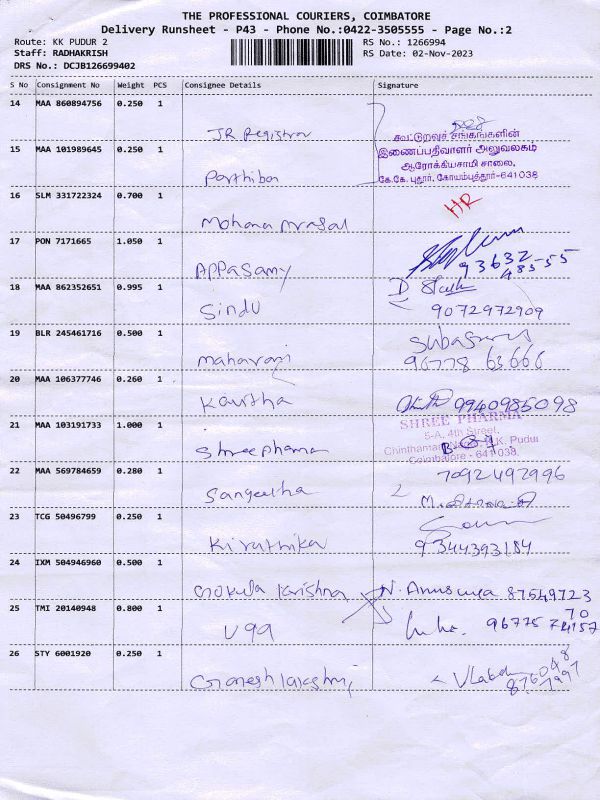 THE PROFESSIONAL COURIERS, COIMBATORE
Delivery Runsheet - P43 - Phone No.:0422-3505555 - Page No.:2
Route: KK PUDUR 2 RS No.: 1266994
Staff: RADHAKRISH RS Date: 02-Nov-2023
DRS No.: DCJB126699402
S No Consignment No Weight PCS Consignee Details Signature
14 MAA 860894756 0.250 1
JR Registrar கூட்டுறவுச் சங்கங்களின்
15 MAA 101989645 0.250 1 இணைப்பதிவாளர் அலுவலகம்
ஆரோக்கியசாமி சாலை,
Parthiban கே.கே. புதூர், கோயம்புத்தூர்-641 038
16 SLM 331722324 0.700 1 HR
Mohana
17 PON 7171665 1.050 1
Appasamy 93632
48555
18 MAA 862352651 0.995 1
Sindu 9072972909
19 BLR 245461716 0.500 1
Maharani 96778 63666
20 MAA 106377746 0.260 1
Kavitha 9940985098
21 MAA 103191733 1.000 1 SHREE PHARMA
5-A, 4th Street,
Shreepharma Coimbatore - 641 038.
22 MAA 569784659 0.280 1 7092492996
Sangeetha
23 TCG 50496799 0.250 1
Kiruthika 9344393184
24 IXM 504946960 0.500 1
Gokula Krishna N. Anusuya 87549723
70
25 TMI 20140948 0.800 1
Uga
26 STY 6001920 0.250 1
Ganesh